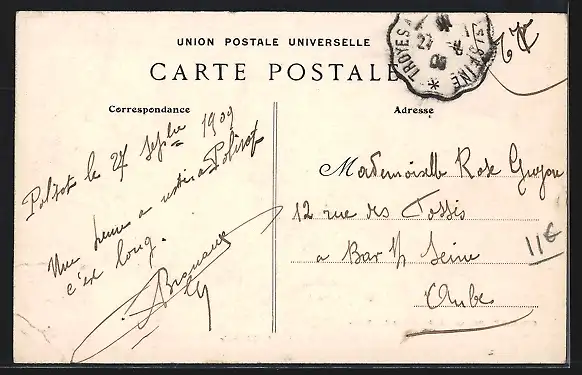 UNION POSTALE UNIVERSELLE
CARTE POSTALE
TROYES A
SEINE
27
09
Correspondance
Adresse
Polisot le 27 Septbre 1909
Une heure a Polisot
c'est long.
Mademoiselle Rose Guyon
12 rue des Fossés
a Bar s/ Seine
Aube
11€